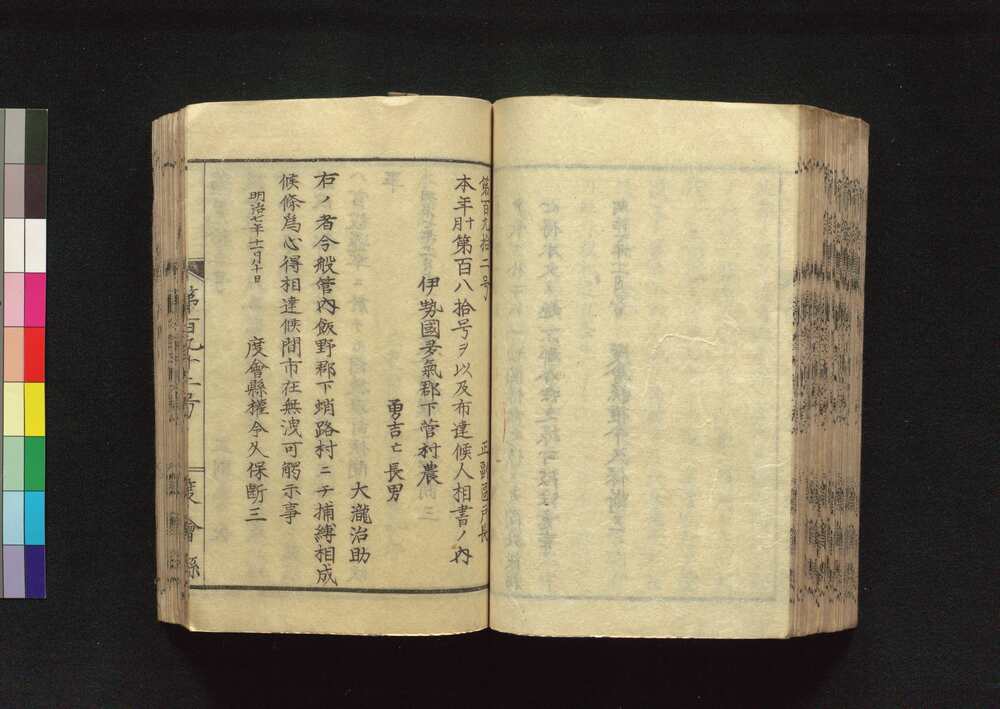 第百九拾二号 正副區戸長
本年十月第百八拾号ヲ以及布達候人相書ノ内
伊勢國多氣郡下菅村農
勇吉亡長男
大瀧治助
右ノ者今般管内飯野郡下蛸路村ニテ捕縛相成
候條為心得相達候間市在無洩可觸示事
明治七年十一月十日
度會縣權令久保斷三
第百九十二号
度會縣